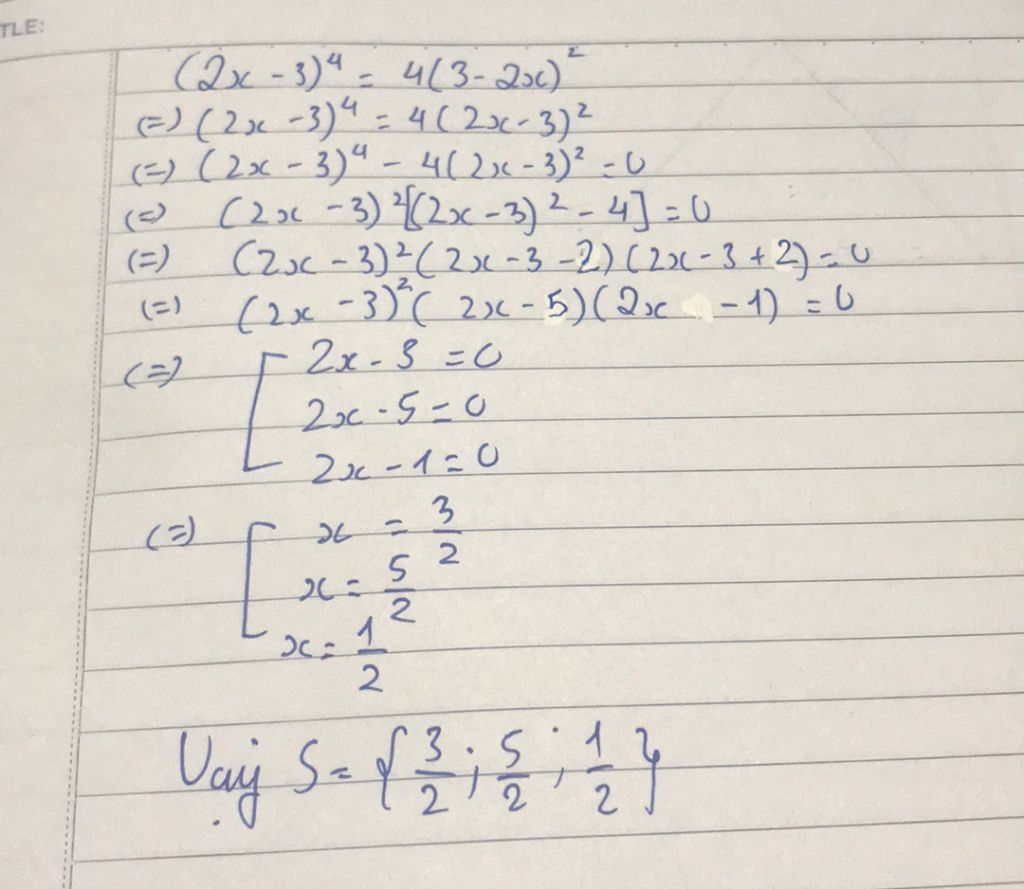 TLE:
(2x - 3)⁴ = 4(3 - 2x)²
(=) (2x - 3)⁴ = 4(2x - 3)²
(=) (2x - 3)⁴ - 4(2x - 3)² = 0
(=) (2x - 3)²[(2x - 3)² - 4] = 0
(=) (2x - 3)²(2x - 3 - 2)(2x - 3 + 2) = 0
(=) (2x - 3)²(2x - 5)(2x - 1) = 0
(=) [ 2x - 3 = 0
2x - 5 = 0
2x - 1 = 0
(=) [ x = 3/2
x = 5/2
x = 1/2
Vậy S = {3/2; 5/2; 1/2}